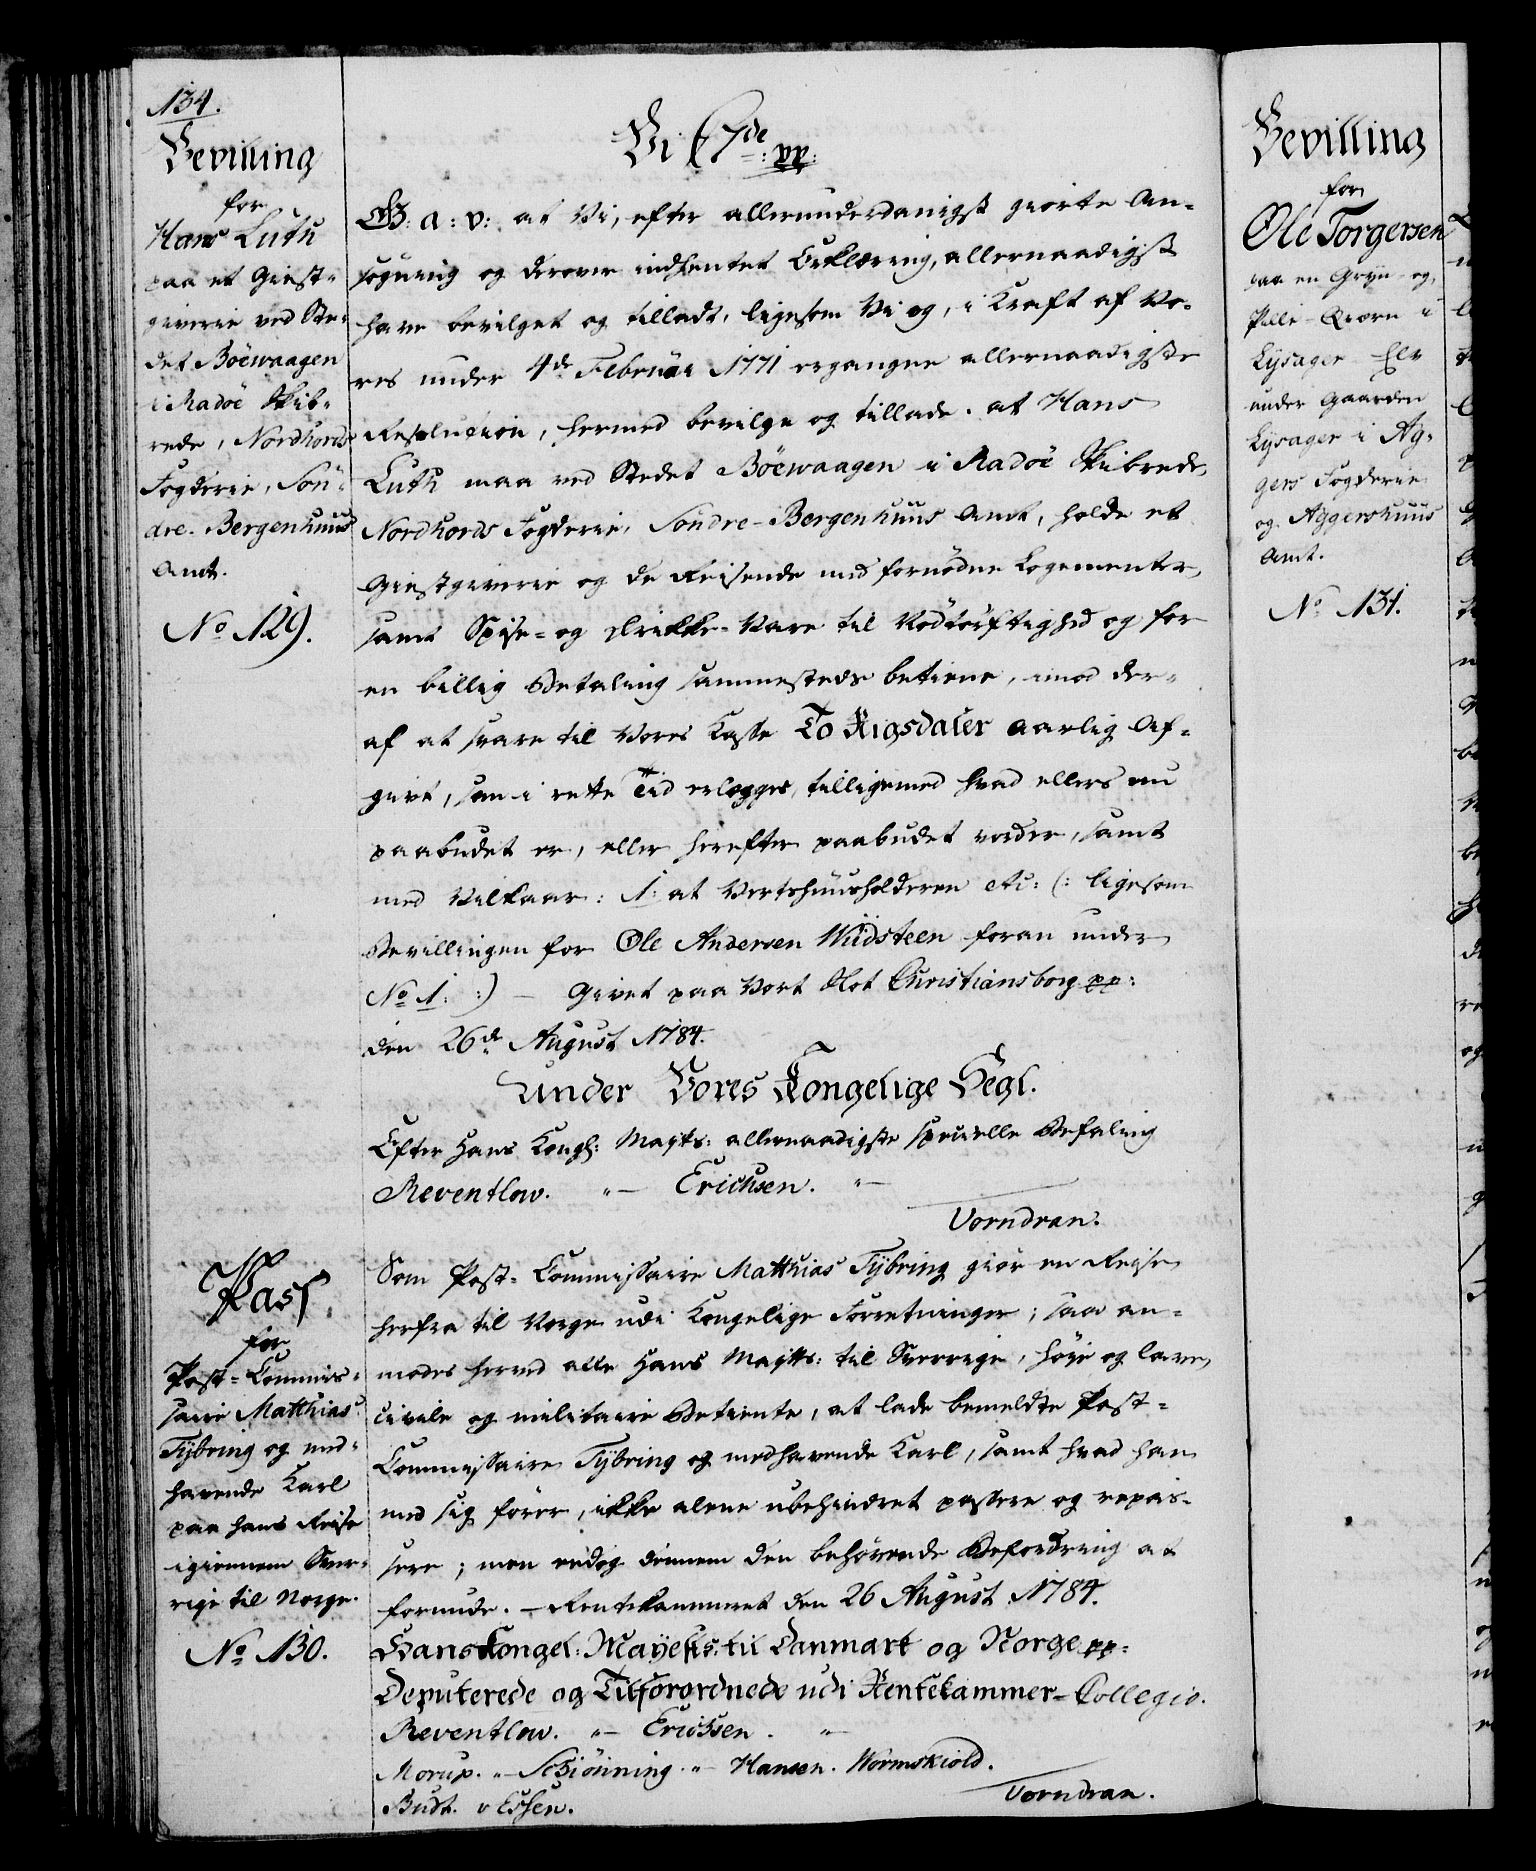 134.
Bevilling
for
Hans Luth
paa et Giest-
giverie ved Ste-
det Böewaagen
i Radöe Skib-
rede, Nordhords
Fogderie, Sön-
dre-Bergenhuus
Amt.
No 129.
Vi C 7de: pp:
G: a: v: at Vi, efter allerunderdanigst giorte An-
søgning og derover indhentet Erklæring, allernaadigst
have bevilget og tilladt, ligesom Vi og, i Kraft af Vo-
res under 4de Februar 1771 ergangne allernaadigste
Resolution, hermed bevilge og tillade, at Hans
Luth maa ved Stedet Böewaagen i Radöe Skibrede,
Nordhords Fogderie, Söndre-Bergenhuus Amt, holde et
Giestgiverie og de Reisende med fornödne Logementer,
samt Spise- og Drikke-Vare til Nödtörftighed og for
en billig Betaling sammesteds betiene, imod der-
af at svare til Vores Casse To Rigsdaler aarlig Af-
givt, som i rette Tid erlægges, tilligemed hvad ellers nu
paabudet er, eller herefter paabudet vorder, samt
med Vilkaar: 1: at Vertshuusholderen etc: (: ligesom
Bevillingen for Ole Andersen Wiidsteen foran under
No 1: :) — Givet paa Vort Slot Christiansborg pp:
den 26de August 1784.
Under Vores Kongelige Segl.
Efter Hans Kongl: Mayts: allernaadigste specielle Befaling
Reventlow. "— Erichsen. "—
Vorndran.
Pass
for
Post-Commis-
saire Matthias
Tÿbring og med-
havende Karl
paa hans Reise
igiennem Sver-
rige til Norge.
No 130.
Som Post-Commissaire Matthias Tÿbring giör en Reise
herfra til Norge udi Kongelige Forretninger; saa an-
modes herved alle Hans Maytts: til Sverrige, höye og lave,
civile og militaire Betiente, at lade bemeldte Post-
Commissaire Tÿbring og medhavende Karl, samt hvad han
med sig förer, ikke alene ubehindret passere og repas-
sere; men endog dennem den behörende Befordring at
forunde. — Rentekammeret den 26 August 1784.
Hans Kongel: Mayets: til Danmark og Norge pp:
Deputerede og Tilforordnede udi Rentekammer-Collegio.
Reventlow. "— Erichsen. "—
Morup. "— Schiönning "— Hansen. Wormskiold.
Budt. v Essen.
Vorndran.
Bevilling
for
Ole Torgersen
paa en Gryn- og
Pille-Qværn i
Lysager Elv
under Gaarden
Lysager i Ag-
gers Fogderie
og Aggershuus
Amt.
No 131.